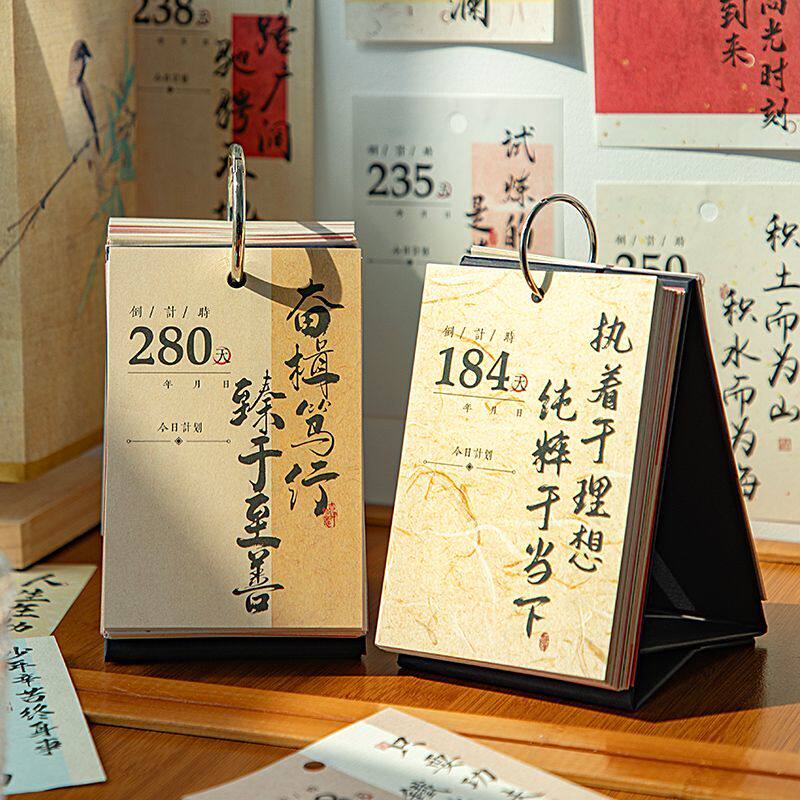 倒/計/時
280天
年 月 日
今日計划
奋楫笃行
臻于至善
倒/計/時
184天
年 月 日
今日計划
执着于理想
纯粹于当下
238天
今日計划
路广阔
倒/計/時
235天
今日計划
试炼的
是
澜
高光时刻
到来
倒/計/時
250
积土而为山
积水而为海
人生至力
少年辛苦终身事
只要功夫